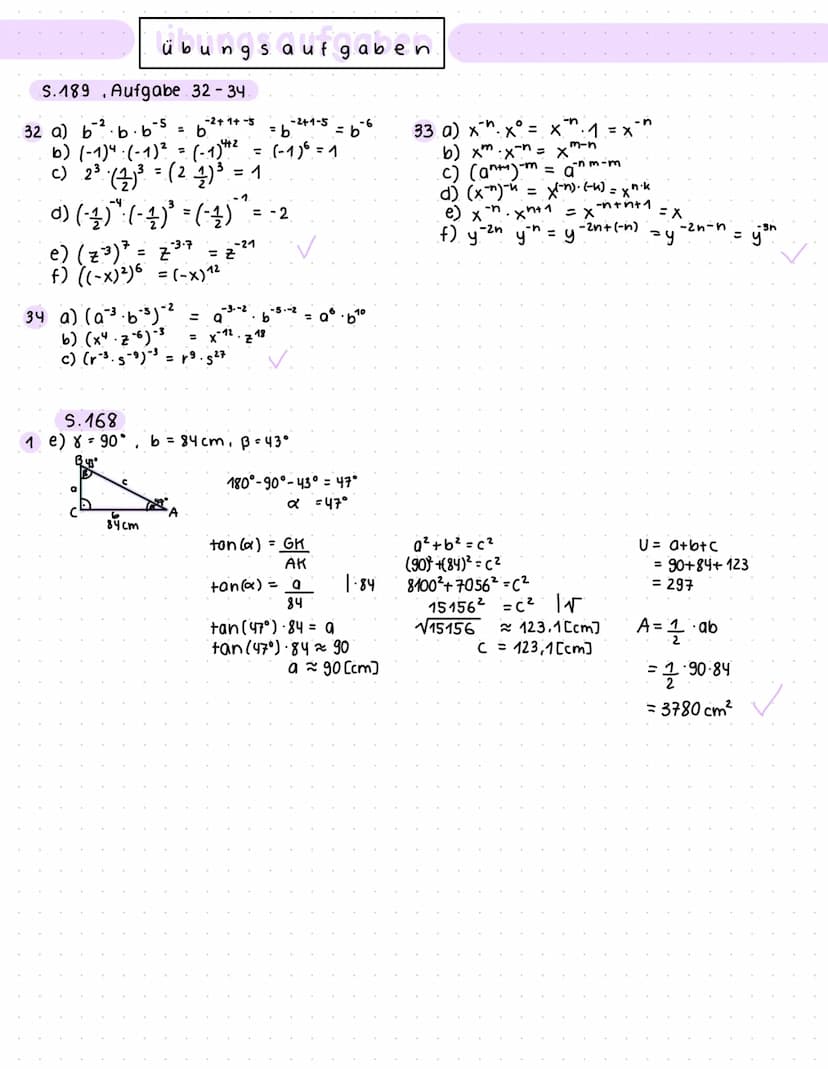 Übungsaufgaben
S.189, Aufgabe 32-34
32 a) b⁻² · b · b⁻⁵ = b⁻²⁺¹⁺⁻⁵ = b⁻²⁺¹⁻⁵ = b⁻⁶
b) (-1)⁴ · (-1)² = (-1)⁴⁺² = (-1)⁶ = 1
c) 2³ · (1/2)³ = (2 1/2)³ = 1
d) (-1/2)⁻⁴ · (-1/2)³ = (-1/2)⁻¹ = -2
e) (z⁻³)⁷ = z⁻³·⁷ = z⁻²¹
f) ((-x)²)⁶ = (-x)¹²
33 a) x⁻ⁿ · x⁰ = x⁻ⁿ · 1 = x⁻ⁿ
b) xᵐ · x⁻ⁿ = xᵐ⁻ⁿ
c) (aⁿ⁺¹)⁻ᵐ = a⁻ⁿᵐ⁻ᵐ
d) (x⁻ⁿ)⁻ᵏ = x⁽⁻ⁿ⁾·⁽⁻ᵏ⁾ = xⁿ·ᵏ
e) x⁻ⁿ · xⁿ⁺¹ = x⁻ⁿ⁺ⁿ⁺¹ = x
f) y⁻²ⁿ y⁻ⁿ = y⁻²ⁿ⁺⁽⁻ⁿ⁾ = y⁻²ⁿ⁻ⁿ = y⁻³ⁿ
34 a) (a⁻³ · b⁻⁵)⁻² = a⁻³·⁻² · b⁻⁵·⁻² = a⁶ · b¹⁰
b) (x⁴ · z⁻⁶)⁻³ = x⁻¹² · z¹⁸
c) (r⁻³ · s⁻⁹)⁻³ = r⁹ · s²⁷
S.168
1 e) γ = 90°, b = 84cm, β = 43°
B 43°
β
a
c
C
b
A
84cm
180° - 90° - 43° = 47°
α = 47°
tan(α) = GK/AK
tan(α) = a/84 | · 84
tan(47°) · 84 = a
tan(47°) · 84 ≈ 90
a ≈ 90 [cm]
a² + b² = c²
(90)² + (84)² = c²
8100² + 7056² = c²
15156² = c² | √
√15156 ≈ 123,1 [cm]
c = 123,1 [cm]
U = a+b+c
= 90+84+123
= 297
A = 1/2 · ab
= 1/2 · 90 · 84
= 3780 cm²